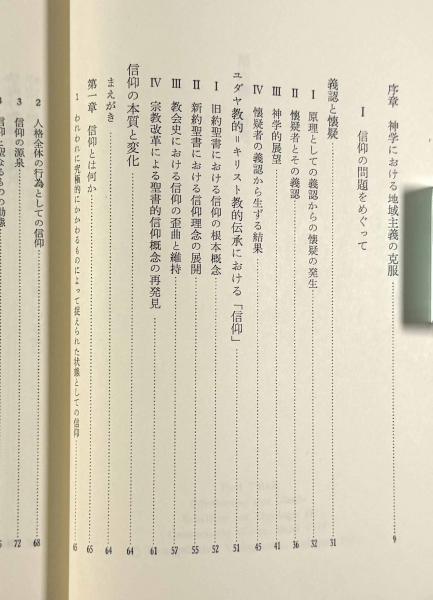 序章 神学における地域主義の克服……9
I 信仰の問題をめぐって
義認と懐疑……31
I 原理としての義認からの懐疑の発生……32
II 懐疑者とその義認……36
III 神学的展望……41
IV 懐疑者の義認から生ずる結果……45
ユダヤ教的=キリスト教的伝承における「信仰」……51
I 旧約聖書における信仰の根本概念……52
II 新約聖書における信仰理念の展開……55
III 教会史における信仰の歪曲と維持……57
IV 宗教改革による聖書的信仰概念の再発見……61
信仰の本質と変化……64
まえがき……64
第一章 信仰とは何か……65
1 われわれに究極的にかかわるものによって捉えられた状態としての信仰……65
2 人格全体の行為としての信仰……68
3 信仰の源泉……72
信仰と聖なるものの動態